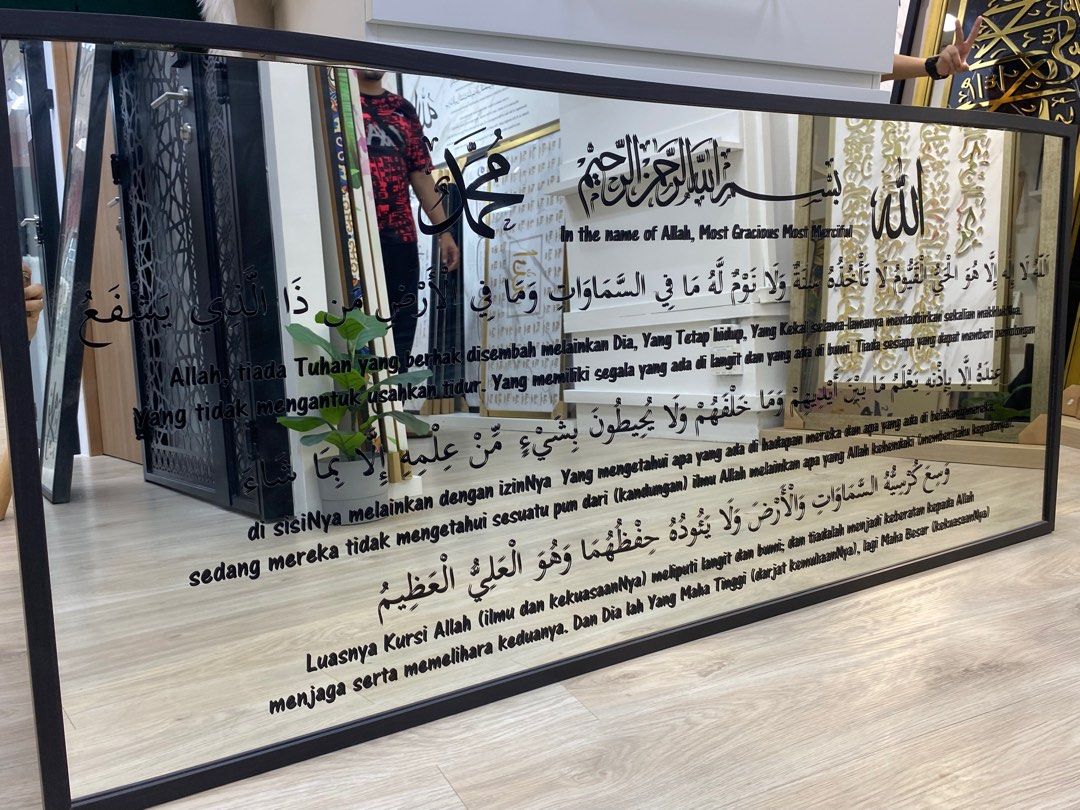 الله
بِسْمِ اللَّهِ الرَّحْمَٰنِ الرَّحِيمِ
مُحَمَّد
In the name of Allah, Most Gracious Most Merciful
اللَّهُ لَا إِلَٰهَ إِلَّا هُوَ الْحَيُّ الْقَيُّومُ لَا تَأْخُذُهُ سِنَةٌ وَلَا نَوْمٌ لَّهُ مَا فِي السَّمَاوَاتِ وَمَا فِي الْأَرْضِ مَن ذَا الَّذِي يَشْفَعُ
Allah, tiada Tuhan yang berhak disembah melainkan Dia, Yang Tetap hidup, Yang Kekal selama-lamanya mentadbirkan sekalian makhlukNya.
Yang tidak mengantuk usahkan tidur. Yang memiliki segala yang ada di langit dan yang ada di bumi. Tiada sesiapa yang dapat memberi pertolongan
عِندَهُ إِلَّا بِإِذْنِهِ يَعْلَمُ مَا بَيْنَ أَيْدِيهِمْ وَمَا خَلْفَهُمْ وَلَا يُحِيطُونَ بِشَيْءٍ مِّنْ عِلْمِهِ إِلَّا بِمَا شَاءَ
di sisiNya melainkan dengan izinNya Yang mengetahui apa yang ada di hadapan mereka dan apa yang ada di belakang mereka,
sedang mereka tidak mengetahui sesuatu pun dari (kandungan) ilmu Allah melainkan apa yang Allah kehendaki (memberitahu kepadanya).
وَسِعَ كُرْسِيُّهُ السَّمَاوَاتِ وَالْأَرْضَ وَلَا يَئُودُهُ حِفْظُهُمَا وَهُوَ الْعَلِيُّ الْعَظِيمُ
Luasnya Kursi Allah (ilmu dan kekuasaanNya) meliputi langit dan bumi; dan tiadalah menjadi keberatan kepada Allah
menjaga serta memelihara keduanya. Dan Dia lah Yang Maha Tinggi (darjat kemuliaanNya), lagi Maha Besar (kekuasaanNya)